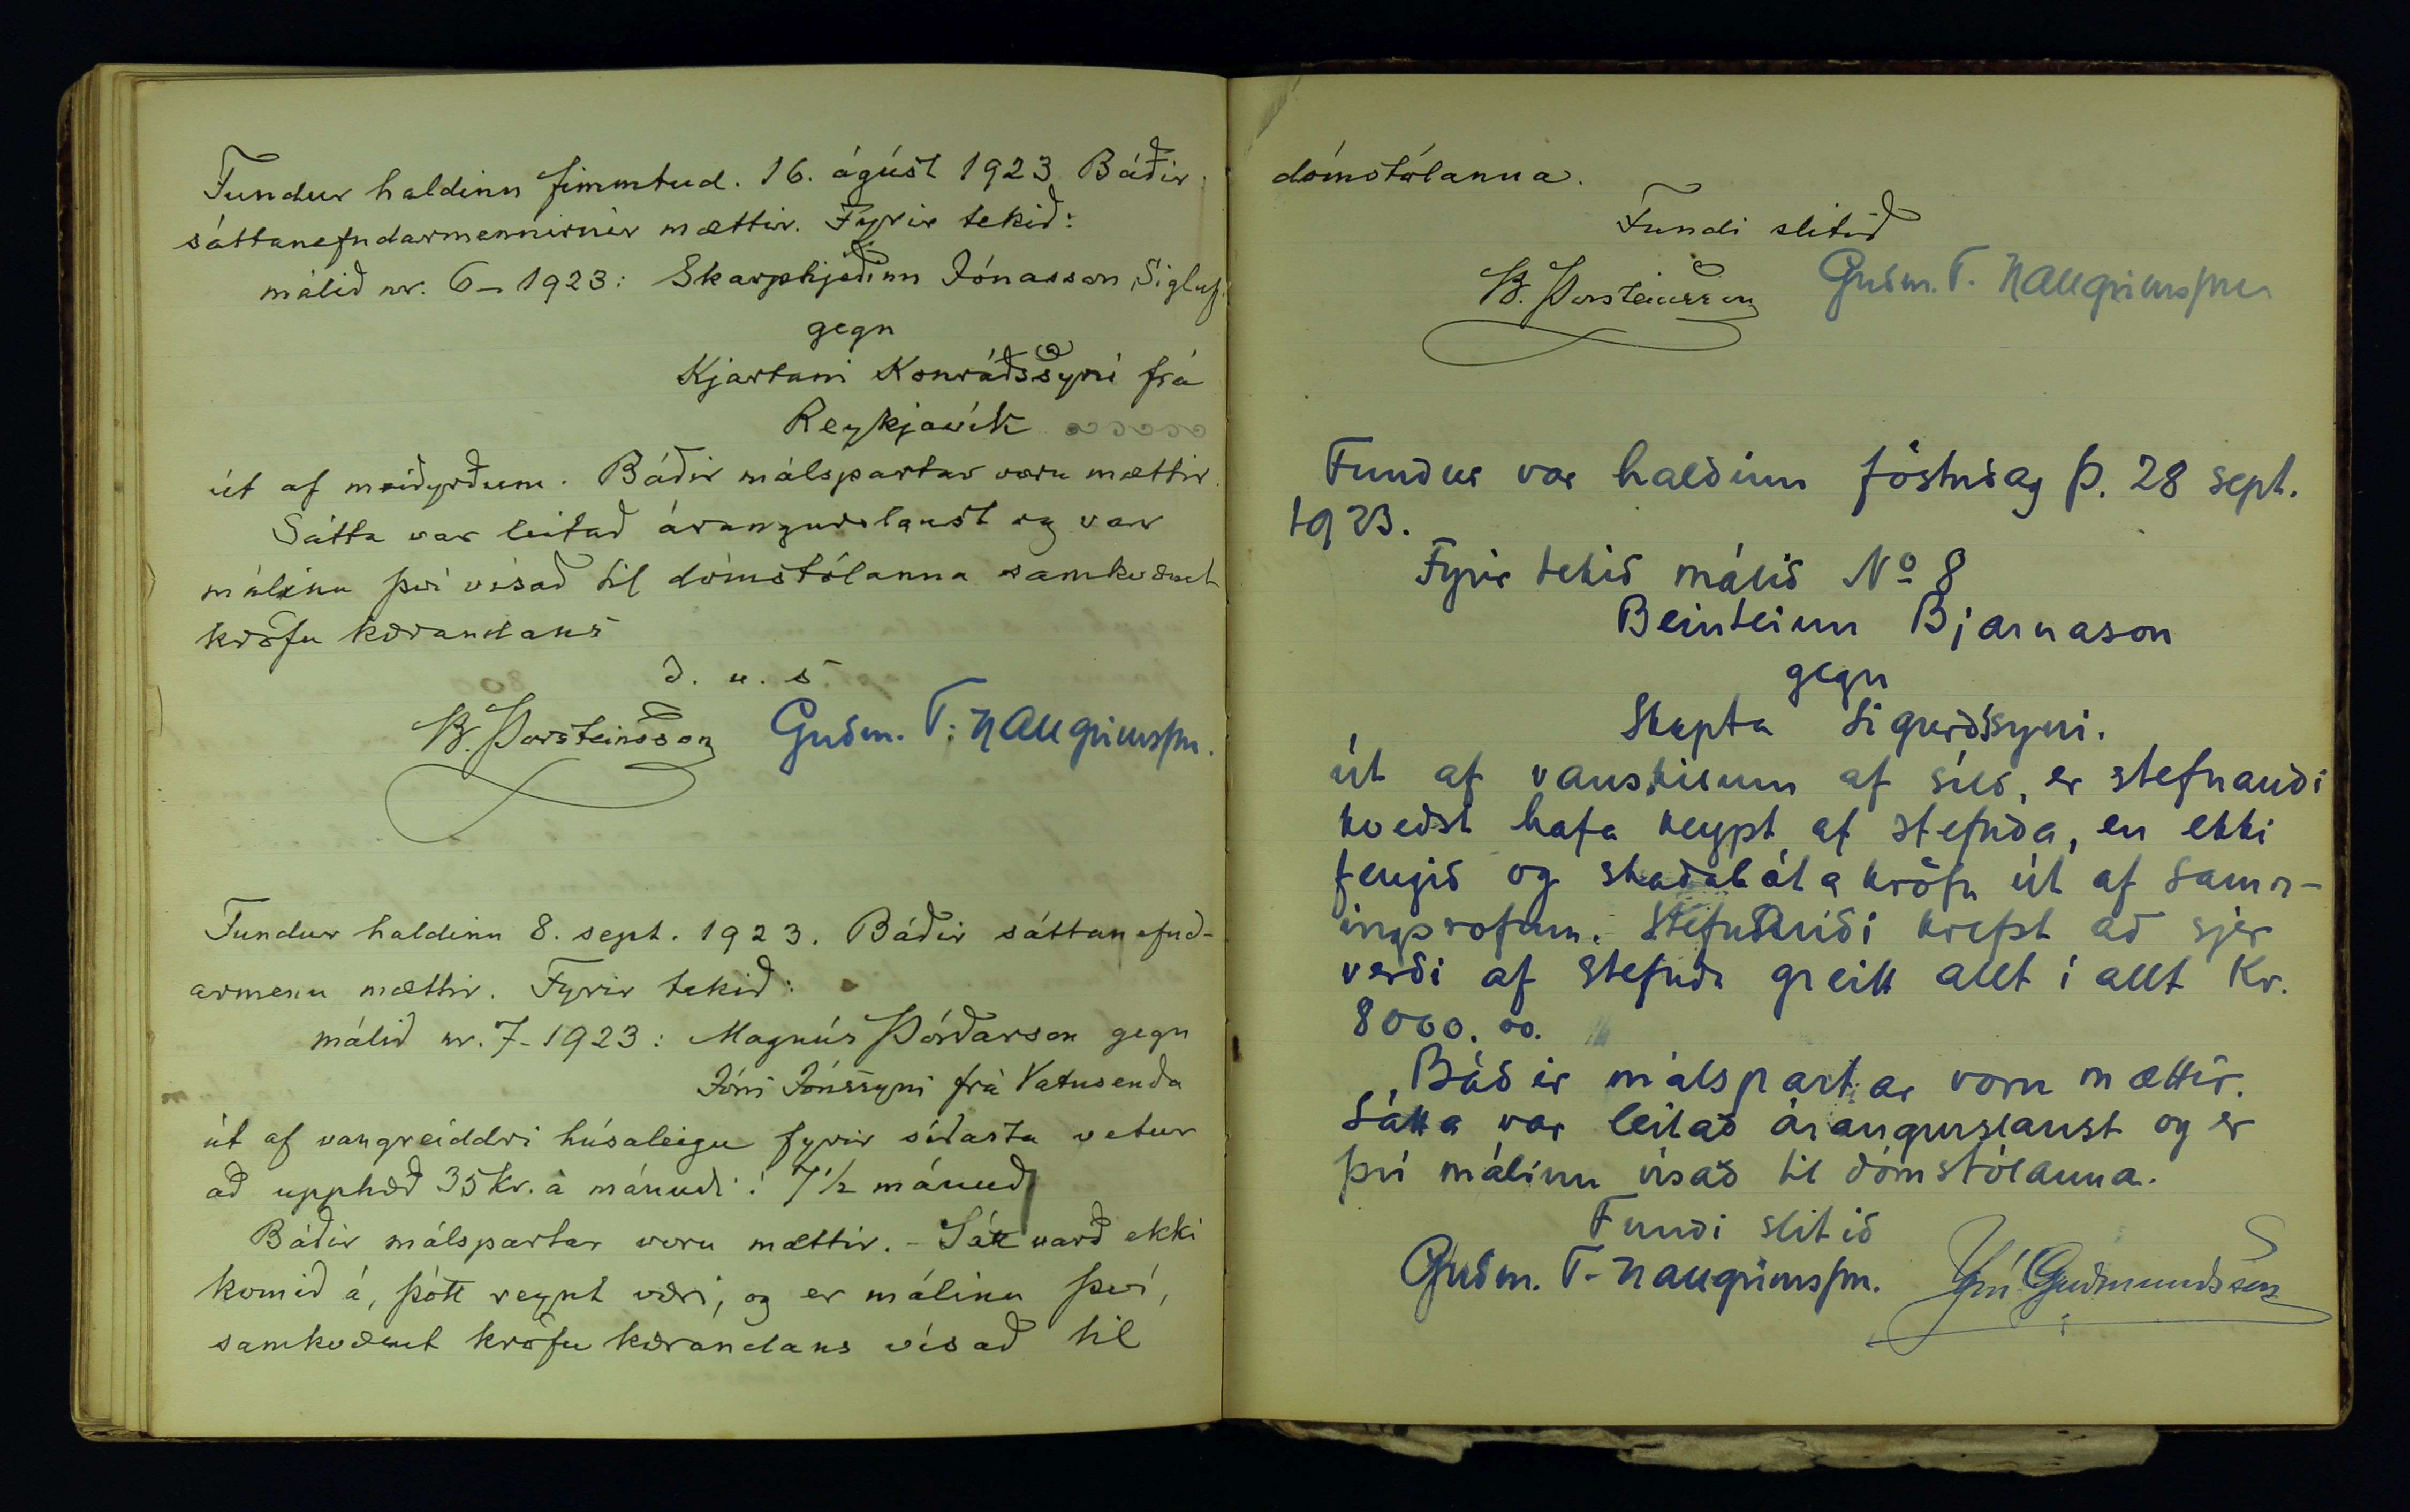 Fundur haldinn fimmtud. 16. ágúst 1923. Báðir
sáttanefndarmennirnir mættir. Fyrir tekið:
málið nr. 6 - 1923: Skarphjeðinn Jónasson, Sigluf.
gegn
Kjartani Konráðssyni frá
Reykjavík
út af meiðyrðum. Báðir málspartar voru mættir.
Sátta var leitað árangurslaust og var
málinu því vísað til dómstólanna samkvæmt
kröfu kærandans
D. u. s
B. Þorsteinsson Guðm. T. Hallgrimsson.
Fundur haldinn 8. sept. 1923. Báðir sáttanefnd-
armenn mættir. Fyrir tekið:
málið nr. 7 - 1923: Magnús Þórðarson gegn
Jóni Jónssyni frá Vatnsenda
út af vangreiddri húsaleigu fyrir síðasta vetur
að upphæð 35 kr. á mánuði í 7 1/2 mánuð
Báðir málspartar voru mættir. - Sátt varð ekki
komið á, þótt reynt væri, og er málinu því,
samkvæmt kröfu kærandans vísað til
dómstólanna.
Fundi slitið
B. Þorsteinsson Guðm. T. Hallgrimsson
Fundur var haldinn föstudag þ. 28 sept.
1923.
Fyrir tekið málið No 8
Beinteinn Bjarnason
gegn
Skapta Sigurðssyni.
út af vanskilum af síld, er stefnandi
kveðst hafa keypt af stefnda, en ekki
fengið og skaðabóta kröfu út af samn-
ingsrofum. Stefnandi krefst að sjer
verði af stefnda greitt allt í allt Kr.
8000.00.
Báðir málspartar voru mættir.
Sátta var leitað árangurslaust og er
því málinu vísað til dómstólanna.
Fundi slitið
Guðm. T. Hallgrimsson. Jón Guðmundsson